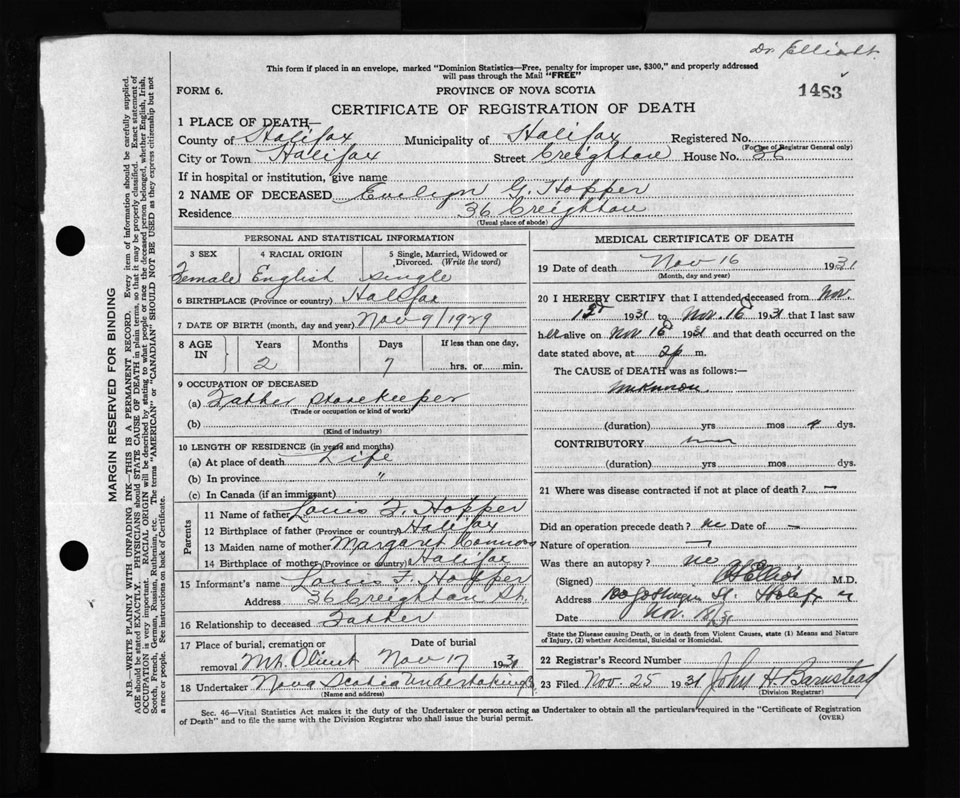 Dr. Elliott.
This form if placed in an envelope, marked "Dominion Statistics—Free, penalty for improper use, $300," and properly addressed
will pass through the Mail "FREE"
FORM 6.
PROVINCE OF NOVA SCOTIA
1483
CERTIFICATE OF REGISTRATION OF DEATH
1 PLACE OF DEATH—
County of Halifax Municipality of Halifax Registered No.
(For use of Registrar General only)
City or Town Halifax Street Creighton House No. 36
If in hospital or institution, give name
2 NAME OF DECEASED Evelyn G. Hopper
Residence 36 Creighton
(Usual place of abode)
PERSONAL AND STATISTICAL INFORMATION
3 SEX 4 RACIAL ORIGIN 5 Single, Married, Widowed or Divorced. (Write the word)
Female English Single
6 BIRTHPLACE (Province or country) Halifax
7 DATE OF BIRTH (month, day and year) Nov 9/1929
8 AGE IN Years Months Days If less than one day.
2 7 hrs. or min.
9 OCCUPATION OF DECEASED
(a) Father Storekeeper
(Trade or occupation or kind of work)
(b)
(Kind of industry)
10 LENGTH OF RESIDENCE (in years and months)
(a) At place of death Life
(b) In province "
(c) In Canada (if an immigrant)
Parents
11 Name of father Louis F. Hopper
12 Birthplace of father (Province or country) Halifax
13 Maiden name of mother Margaret Connors
14 Birthplace of mother (Province or country) Halifax
15 Informant's name Louis F. Hopper
Address 36 Creighton St.
16 Relationship to deceased Father
17 Place of burial, cremation or removal Date of burial
Mt. Olivet Nov 17 1931
18 Undertaker Nova Scotia Undertaking
(Name and address)
MEDICAL CERTIFICATE OF DEATH
19 Date of death Nov 16 1931
(Month, day and year)
20 I HEREBY CERTIFY that I attended deceased from Nov.
1931 to Nov. 16 1931 that I last saw
her alive on Nov 16 1931 and that death occurred on
date stated above, at 2 p m.
The CAUSE of DEATH was as follows:—
(duration) yrs mos dys.
CONTRIBUTORY
(duration) yrs mos dys.
21 Where was disease contracted if not at place of death? —
Did an operation precede death? no Date of —
Nature of operation —
Was there an autopsy? no
(Signed) Elliott M.D.
Address Gottingen St. Halifax
Date Nov.
State the Disease causing Death, or in death from Violent Causes, state (1) Means and Nature
of Injury, (2) whether Accidental, Suicidal or Homicidal.
22 Registrar's Record Number
23 Filed Nov. 25 1931 John H. Barnstead
(Division Registrar)
Sec. 46—Vital Statistics Act makes it the duty of the Undertaker or person acting as Undertaker to obtain all the particulars required in the "Certificate of Registration
of Death" and to file the same with the Division Registrar who shall issue the burial permit.
(OVER)
MARGIN RESERVED FOR BINDING
N.B.—WRITE PLAINLY WITH UNFADING INK—THIS IS A PERMANENT RECORD. Every item of information should be carefully supplied.
AGE should be stated EXACTLY. PHYSICIANS should STATE CAUSE OF DEATH in plain terms, so that it may be properly classified. Exact statement of
OCCUPATION is very important. RACIAL ORIGIN will be described by stating to what people or race the deceased person belonged, whether English, Irish,
Scotch, French, German, Russian, Ruthenian, etc. The terms "AMERICAN" or "CANADIAN" SHOULD NOT BE USED as they express citizenship but not
a race or people. See instructions on back of Certificate.